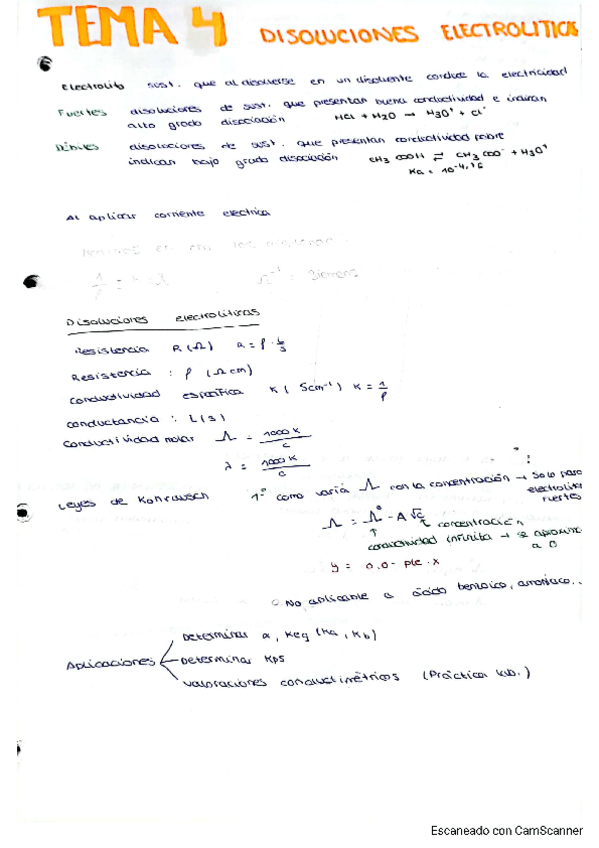 TEMA 4 DISOLUCIONES ELECTROLITICAS
Electrolito sust. que al disolverse en un disolvente conduce la electricidad
Fuertes disoluciones de sust. que presentan buena conductividad e indican
alto grado disociación HCl + H2O → H3O⁺ + Cl⁻
Débiles disoluciones de sust. que presentan conductividad pobre
indican bajo grado disociación CH3COOH ⇌ CH3COO⁻ + H3O⁺
Ka = 10^-4,75
Al aplicar corriente electrica
Ω⁻¹ = Siemens
Disoluciones electrolíticas
Resistencia R (Ω) R = ρ · l/s
Resistencia : ρ (Ω cm)
Conductividad específica K ( Scm⁻¹) K = 1/ρ
conductancia : L (s)
Conductividad molar Λ = 1000 K / c
λ = 1000 K / c
Leyes de Konrausch 1º como varia Λ con la concentración → Solo para
electrolitos
fuertes
Λ = Λ⁰ - A √c
↑ concentración
conductividad infinita → se aproxima
a 0
y = 0,0 - pte · x
○ No aplicable a ácido benzoico, amoniaco...
Determinar α, Keq (Ka, Kb)
Aplicaciones Determinar Kps
Valoraciones conductimétricos (Práctica Lab.)
Escaneado con CamScanner